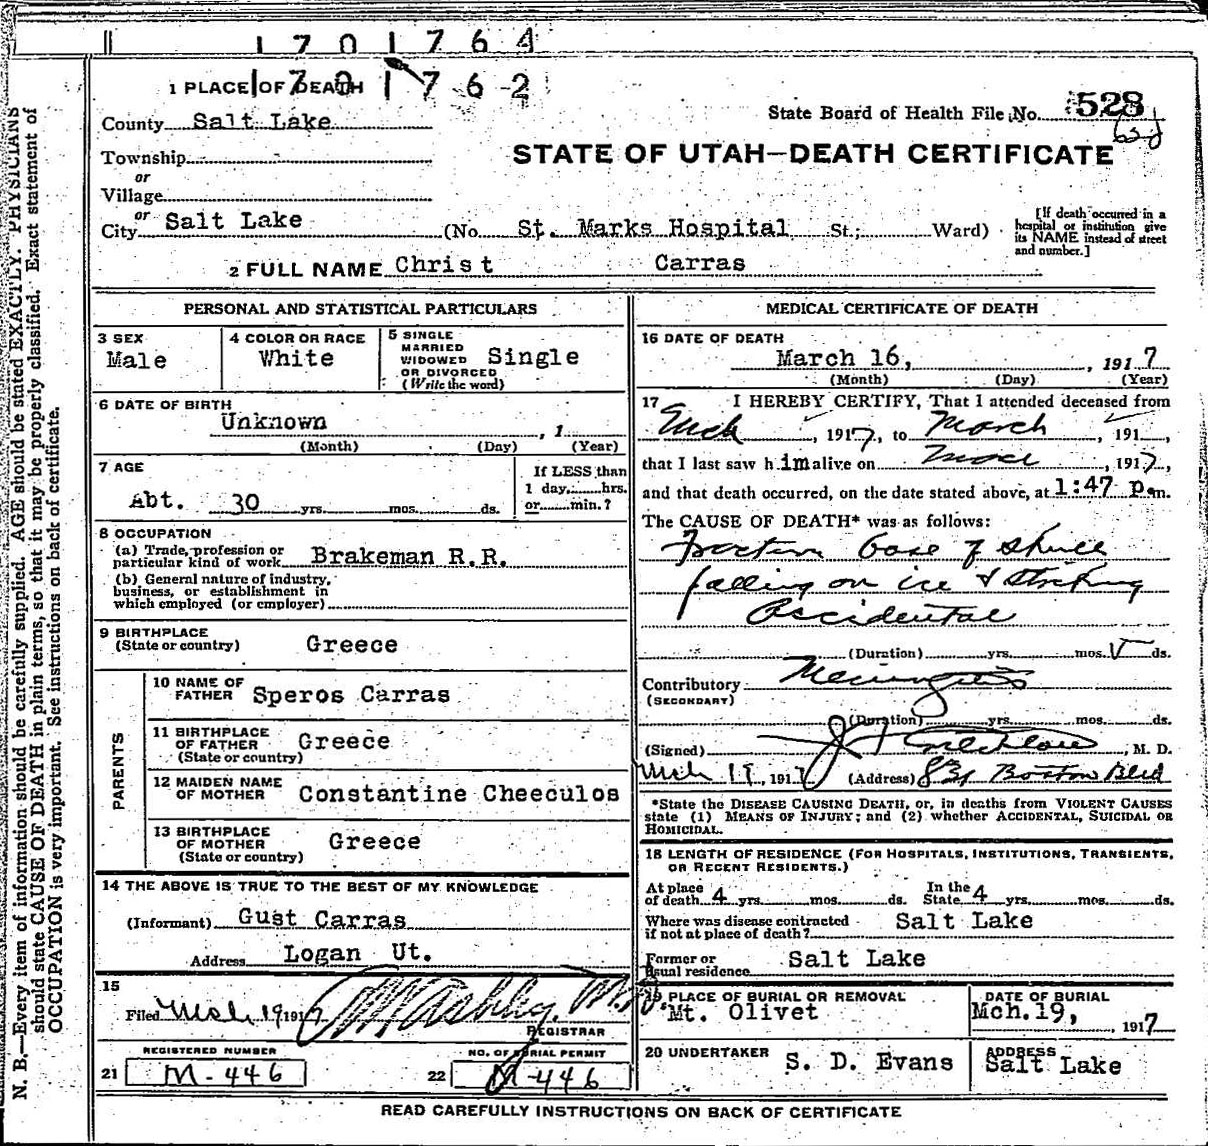 1701764
1701762
1 PLACE OF DEATH
State Board of Health File No. 528
County Salt Lake
STATE OF UTAH—DEATH CERTIFICATE
Township
or
Village
or
City Salt Lake (No. St. Marks Hospital St.; Ward)
[If death occurred in a
hospital or institution give
its NAME instead of street
and number.]
2 FULL NAME Christ Carras
PERSONAL AND STATISTICAL PARTICULARS
3 SEX
Male
4 COLOR OR RACE
White
5 SINGLE
MARRIED
WIDOWED
OR DIVORCED
(Write the word)
Single
6 DATE OF BIRTH
Unknown , 1
(Month) (Day) (Year)
7 AGE
Abt. 30 yrs. mos. ds.
If LESS than
1 day, hrs.
or min.?
8 OCCUPATION
(a) Trade, profession or
particular kind of work Brakeman R.R.
(b) General nature of industry,
business, or establishment in
which employed (or employer)
9 BIRTHPLACE
(State or country) Greece
PARENTS
10 NAME OF
FATHER Speros Carras
11 BIRTHPLACE
OF FATHER Greece
(State or country)
12 MAIDEN NAME
OF MOTHER Constantine Cheeculos
13 BIRTHPLACE
OF MOTHER Greece
(State or country)
14 THE ABOVE IS TRUE TO THE BEST OF MY KNOWLEDGE
(Informant) Gust Carras
Address Logan Ut.
15
Filed Mch 19 1917
REGISTRAR
REGISTERED NUMBER
21 M-446
NO. OF BURIAL PERMIT
22 M-446
MEDICAL CERTIFICATE OF DEATH
16 DATE OF DEATH
March 16, , 1917
(Month) (Day) (Year)
17 I HEREBY CERTIFY, That I attended deceased from
Mch , 1917, to March , 191 ,
that I last saw him alive on , 1917,
and that death occurred, on the date stated above, at 1:47 p.m.
The CAUSE OF DEATH* was as follows:
Fracture base of skull
falling on ice & striking
Accidental
(Duration) yrs. mos. 5 ds.
Contributory Meningitis
(SECONDARY)
(Duration) yrs. mos. ds.
(Signed) , M. D.
Mch 19, 1917 (Address) Boston Bldd
*State the DISEASE CAUSING DEATH, or, in deaths from VIOLENT CAUSES
state (1) MEANS OF INJURY; and (2) whether ACCIDENTAL, SUICIDAL OR
HOMICIDAL.
18 LENGTH OF RESIDENCE (FOR HOSPITALS, INSTITUTIONS, TRANSIENTS,
OR RECENT RESIDENTS.)
At place
of death 4 yrs. mos. ds.
In the
State 4 yrs. mos. ds.
Where was disease contracted
if not at place of death? Salt Lake
Former or
usual residence Salt Lake
19 PLACE OF BURIAL OR REMOVAL
Mt. Olivet
DATE OF BURIAL
Mch.19, , 1917
20 UNDERTAKER S. D. Evans
ADDRESS
Salt Lake
READ CAREFULLY INSTRUCTIONS ON BACK OF CERTIFICATE
N. B.—Every item of information should be carefully supplied. AGE should be stated EXACTLY. PHYSICIANS
should state CAUSE OF DEATH in plain terms, so that it may be properly classified. Exact statement of
OCCUPATION is very important. See instructions on back of certificate.